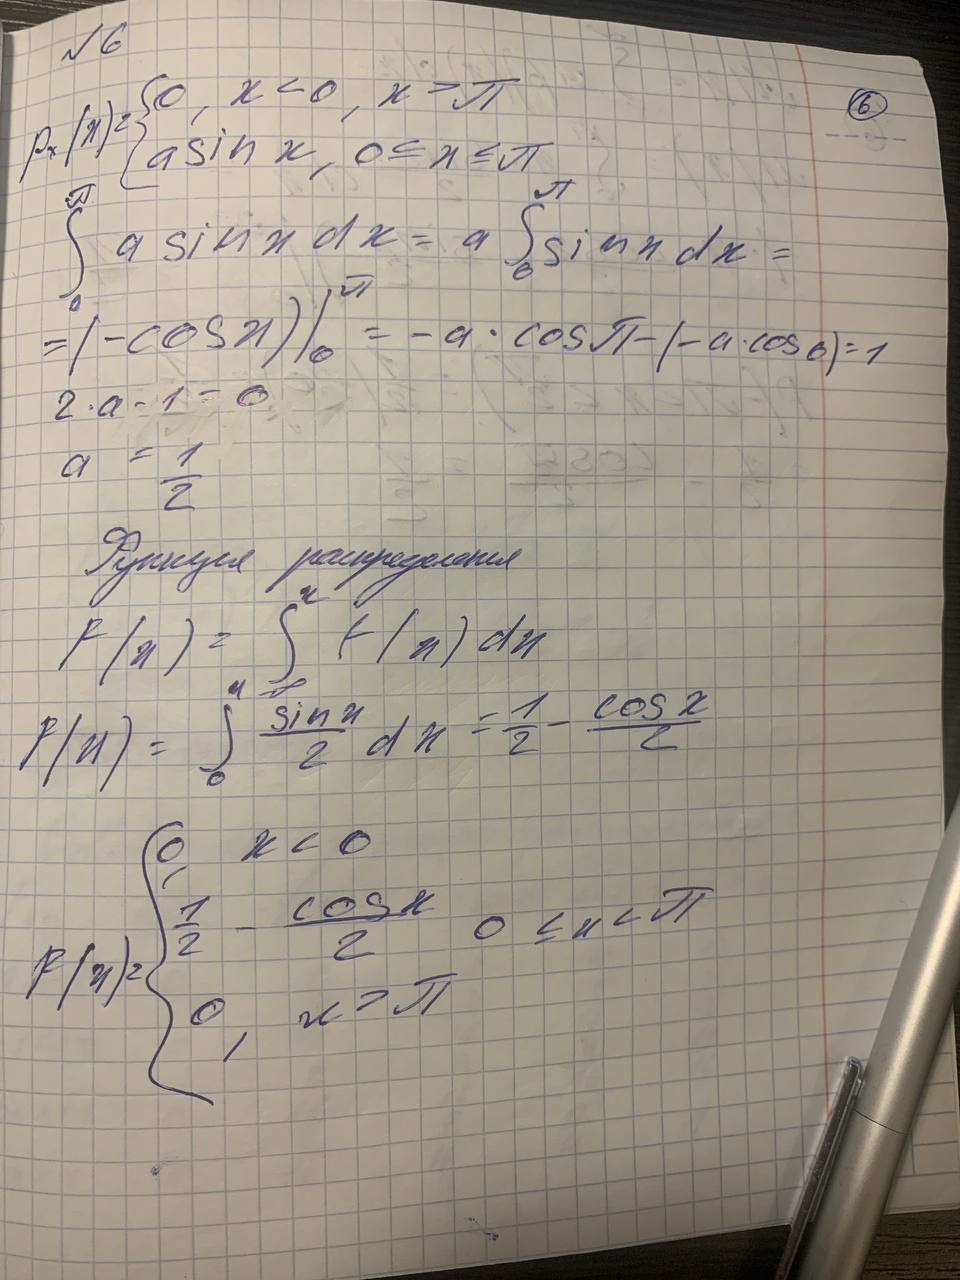 №6
6
pₓ(x) = { 0, x < 0, x > π
a sin x, 0 ≤ x ≤ π
∫₀^π a sin x dx = a ∫₀^π sin x dx =
= (-cos x) |₀^π = -a · cos π - (-a · cos 0) = 1
2 · a - 1 = 0
a = 1/2
Функция распределения
F(x) = ∫_{-∞}^x f(x) dx
F(x) = ∫₀^x sin x/2 dx = 1/2 - cos x/2
F(x) = { 0, x < 0
1/2 - cos x/2 0 ≤ x < π
0, x > π